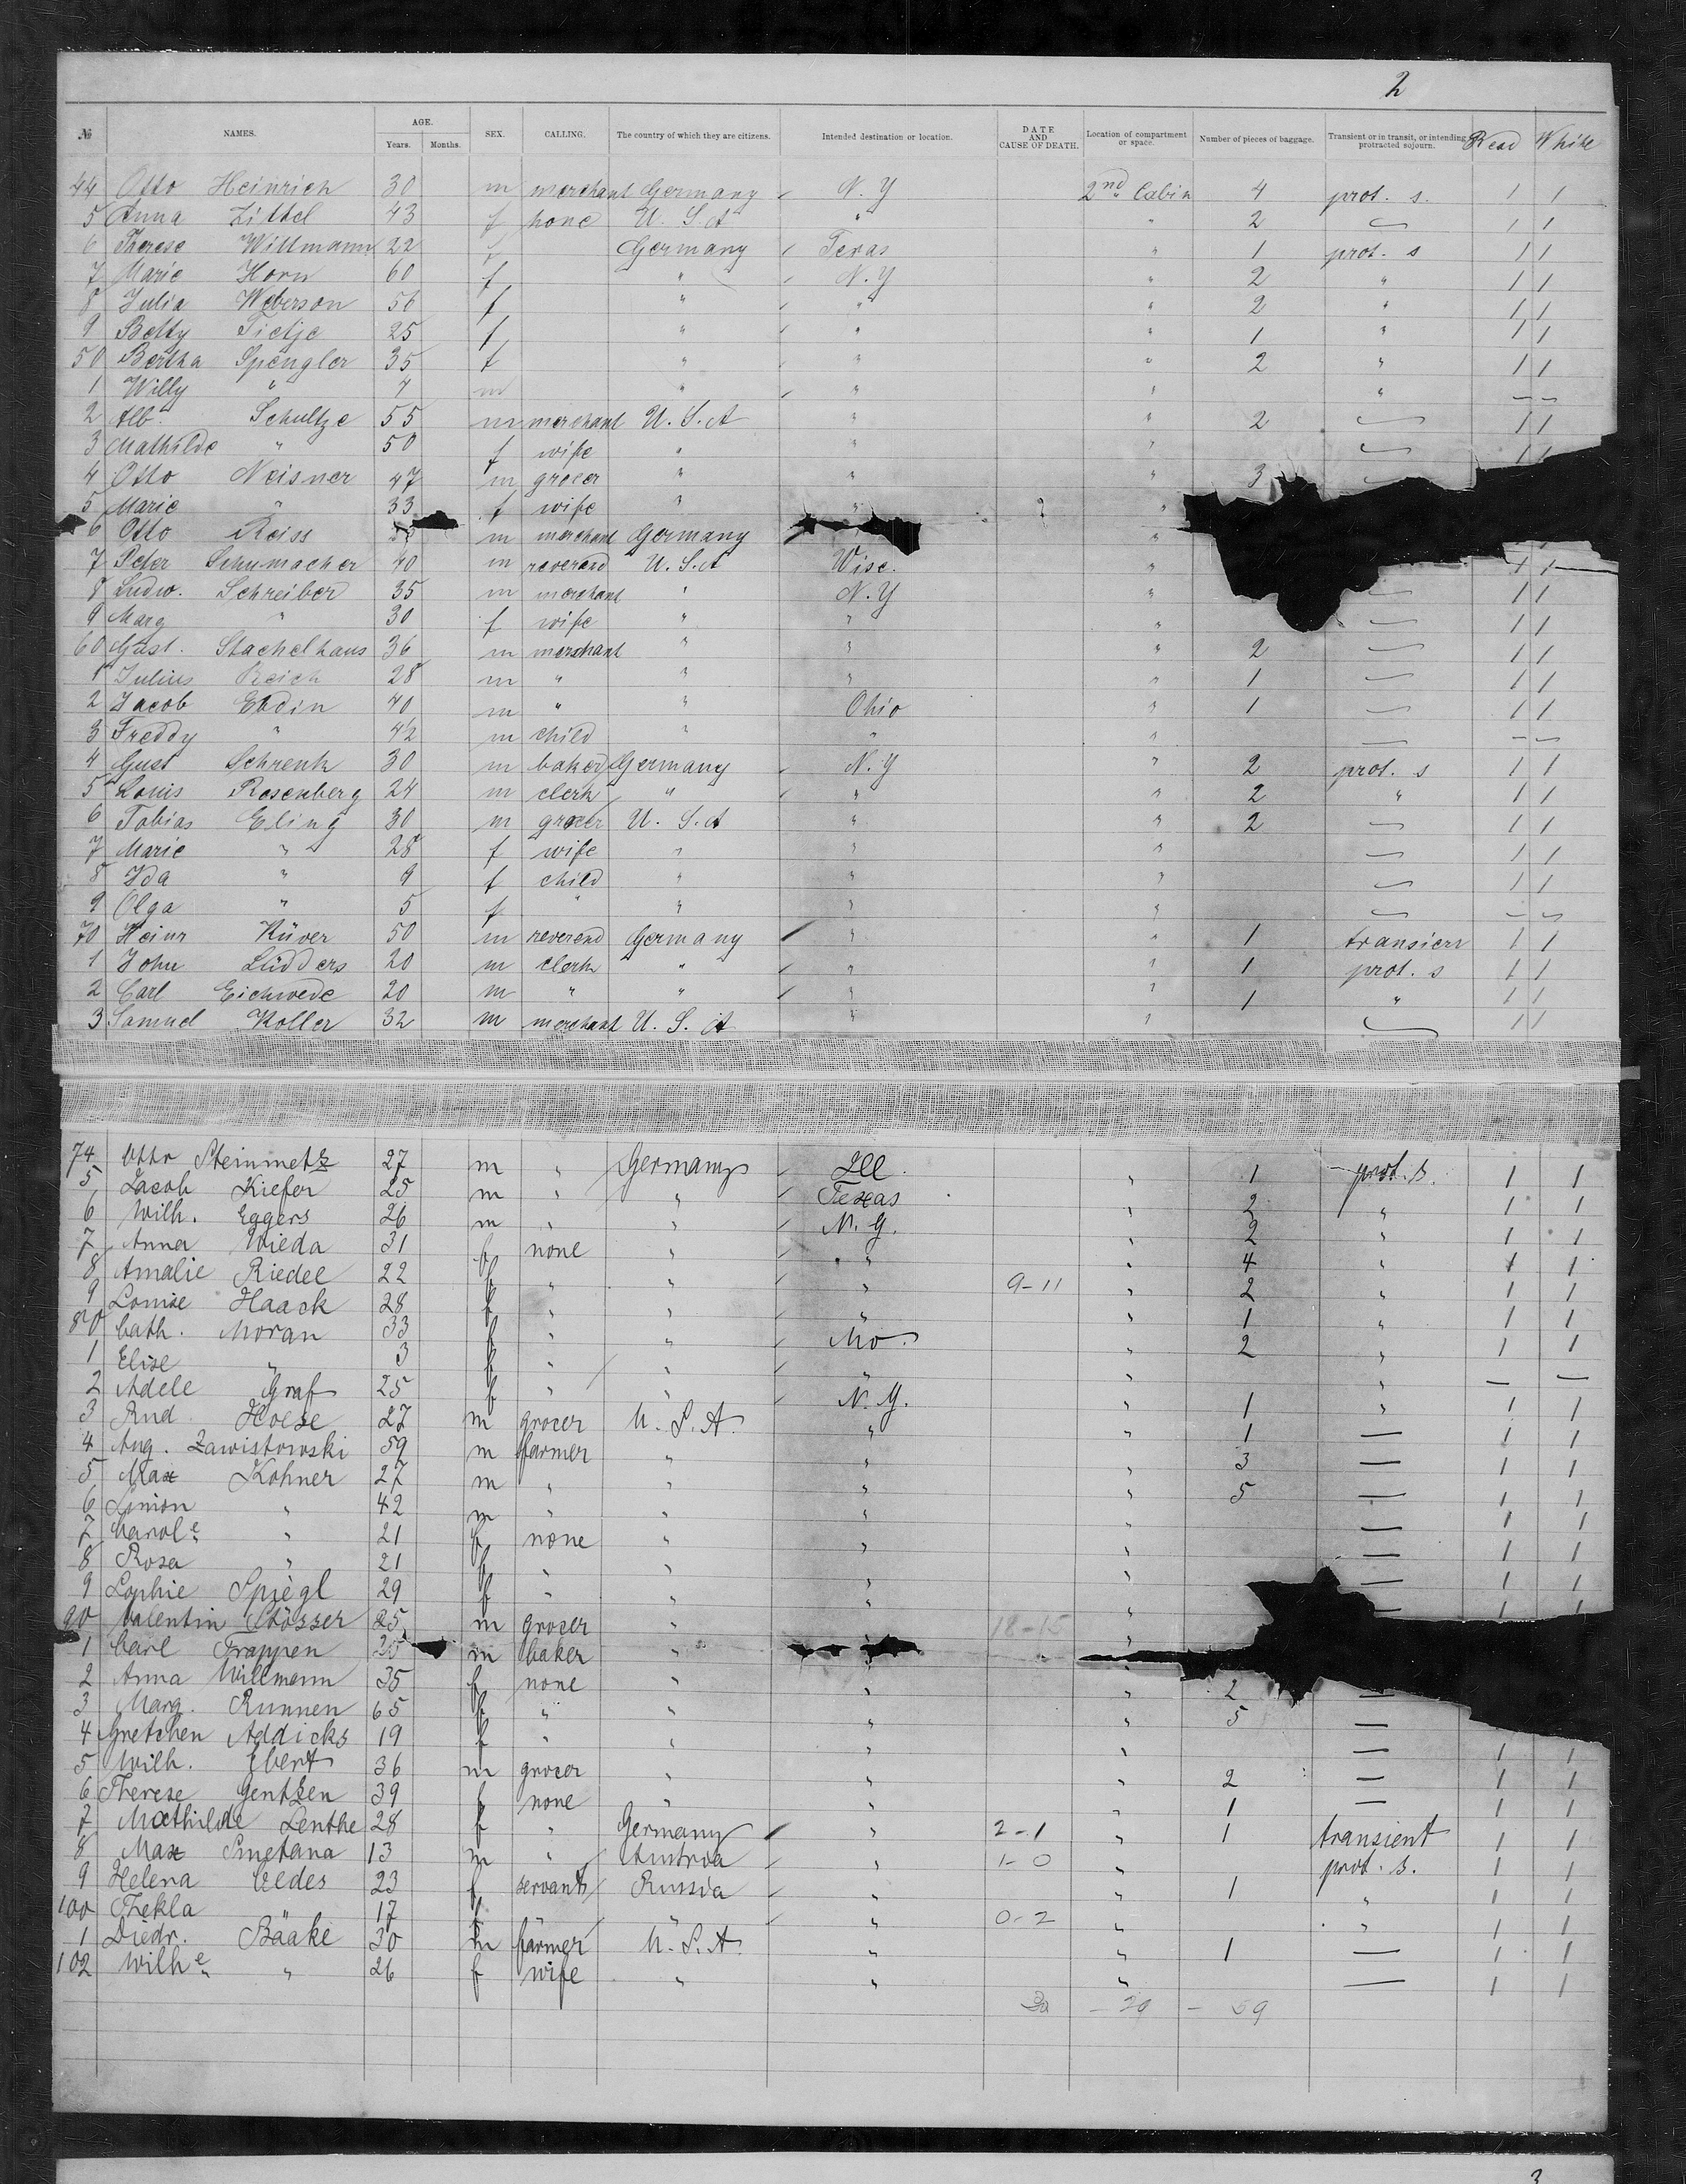 2
№ NAMES. AGE. Years. Months. SEX. CALLING. The country of which they are citizens. Intended destination or location. DATE AND CAUSE OF DEATH. Location of compartment or space. Number of pieces of baggage. Transient or in transit, or intending protracted sojourn. Read White
44 Otto Heinrich 30 m merchant Germany N.Y 2nd Cabin 4 prot. s. 1 1
5 Anna Zittel 43 f none U.S.A " " 2 — 1 1
6 Therese Willmann 22 f Germany Texas " 1 prot. s 1 1
7 Marie Horn 60 f " N.Y " 2 " 1 1
8 Julia Weberson 56 f " " " 2 " 1 1
9 Betty Tietje 25 f " " " 1 " 1 1
50 Bertha Spengler 35 f " " " 2 " 1 1
1 Willy " 7 m " " " " — —
2 Alb. Schultze 55 m merchant U.S.A " " 2 — 1 1
3 Mathilde " 50 f wife " " " — 1 1
4 Otto Neisner 47 m grocer " " " 3 —
5 Marie " 33 f wife " " "
6 Otto Reiss m merchant Germany "
7 Peter Schumacher 40 m reverend U.S.A Wisc. " 1 1
8 Ludw. Schreiber 35 m merchant " N.Y " — 1 1
9 Marg " 30 f wife " " " — 1 1
60 Gust. Stachelhaus 36 m merchant " " " 2 — 1 1
1 Julius Reich 28 m " " " " 1 — 1 1
2 Jacob Ebdin 40 m " " Ohio " 1 — 1 1
3 Freddy " 4½ m child " " " — — —
4 Gust Schrenk 30 m baker Germany N.Y " 2 prot. s 1 1
5 Louis Rosenberg 24 m clerk " " " 2 " 1 1
6 Tobias Eling 30 m grocer U.S.A " " 2 — 1 1
7 Marie " 28 f wife " " " — 1 1
8 Ida " 9 f child " " " — 1 1
9 Olga " 5 f " " " " — — —
70 Heinr Küver 50 m reverend Germany " " 1 transient 1 1
1 John Lüdders 20 m clerk " " " 1 prot. s 1 1
2 Carl Eichwede 20 m " " " " 1 " 1 1
3 Samuel Koller 32 m merchant U.S.A " " — 1 1
74 Otto Steinmetz 27 m " Germany Ill. " 1 prot. s. 1 1
5 Jacob Kiefer 25 m " " Texas " 2 " 1 1
6 Wilh. Eggers 26 m " " N.Y. " 2 " 1 1
7 Anna Wieda 31 f none " " " 4 " 1 1
8 Amalie Riedel 22 f " " " 9-11 " 2 " 1 1
9 Louise Haack 28 f " " " " 1 " 1 1
80 Cath. Moran 33 f " " Mo. " 2 " 1 1
1 Elise " 3 f " " " " " — —
2 Adele Graf 25 f " " N.Y. " 1 " 1 1
3 Rud. Hoese 27 m grocer U.S.A. " " 1 — 1 1
4 Aug. Zawistowski 59 m farmer " " " 3 — 1 1
5 Max Kohner 27 m " " " " 5 — 1 1
6 Simon " 42 m " " " " — 1 1
7 Carole " 21 f none " " " — 1 1
8 Rosa " 21 f " " " " — 1 1
9 Sophie Spiegl 29 f " " " " — 1 1
90 Valentin Stösser 25 m grocer " 18-15 "
1 Carl Trappen 25 m baker " "
2 Anna Willmann 35 f none " " " 2 —
3 Marg. Runnen 65 f " " " " 5 —
4 Gretchen Addicks 19 f " " " " — 1 1
5 Wilh. Ebert 36 m grocer " " " 2 — 1 1
6 Therese Gentzen 39 f none " " " 1 — 1 1
7 Mathilde Lenthe 28 f " Germany " 2-1 " 1 transient 1 1
8 Max Smetana 13 m " Austria " 1-0 " prot. s. 1 1
9 Helena Oldes 23 f servants Russia " " 1 " 1 1
100 Thekla " 17 f " " 0-2 " " 1 1
1 Diedr. Baake 30 m farmer U.S.A. " " 1 — 1 1
102 Wilhe " 26 f wife " " " — 1 1
30 - 29 - 59
3